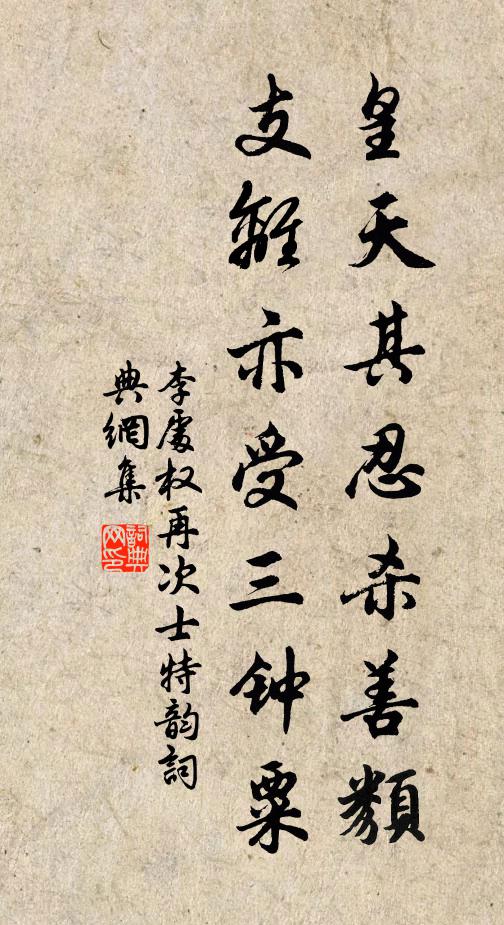 皇天其忍杀善類
支離亦受三钟粟
李處权再次士特韵詞
典網集
詞典网印